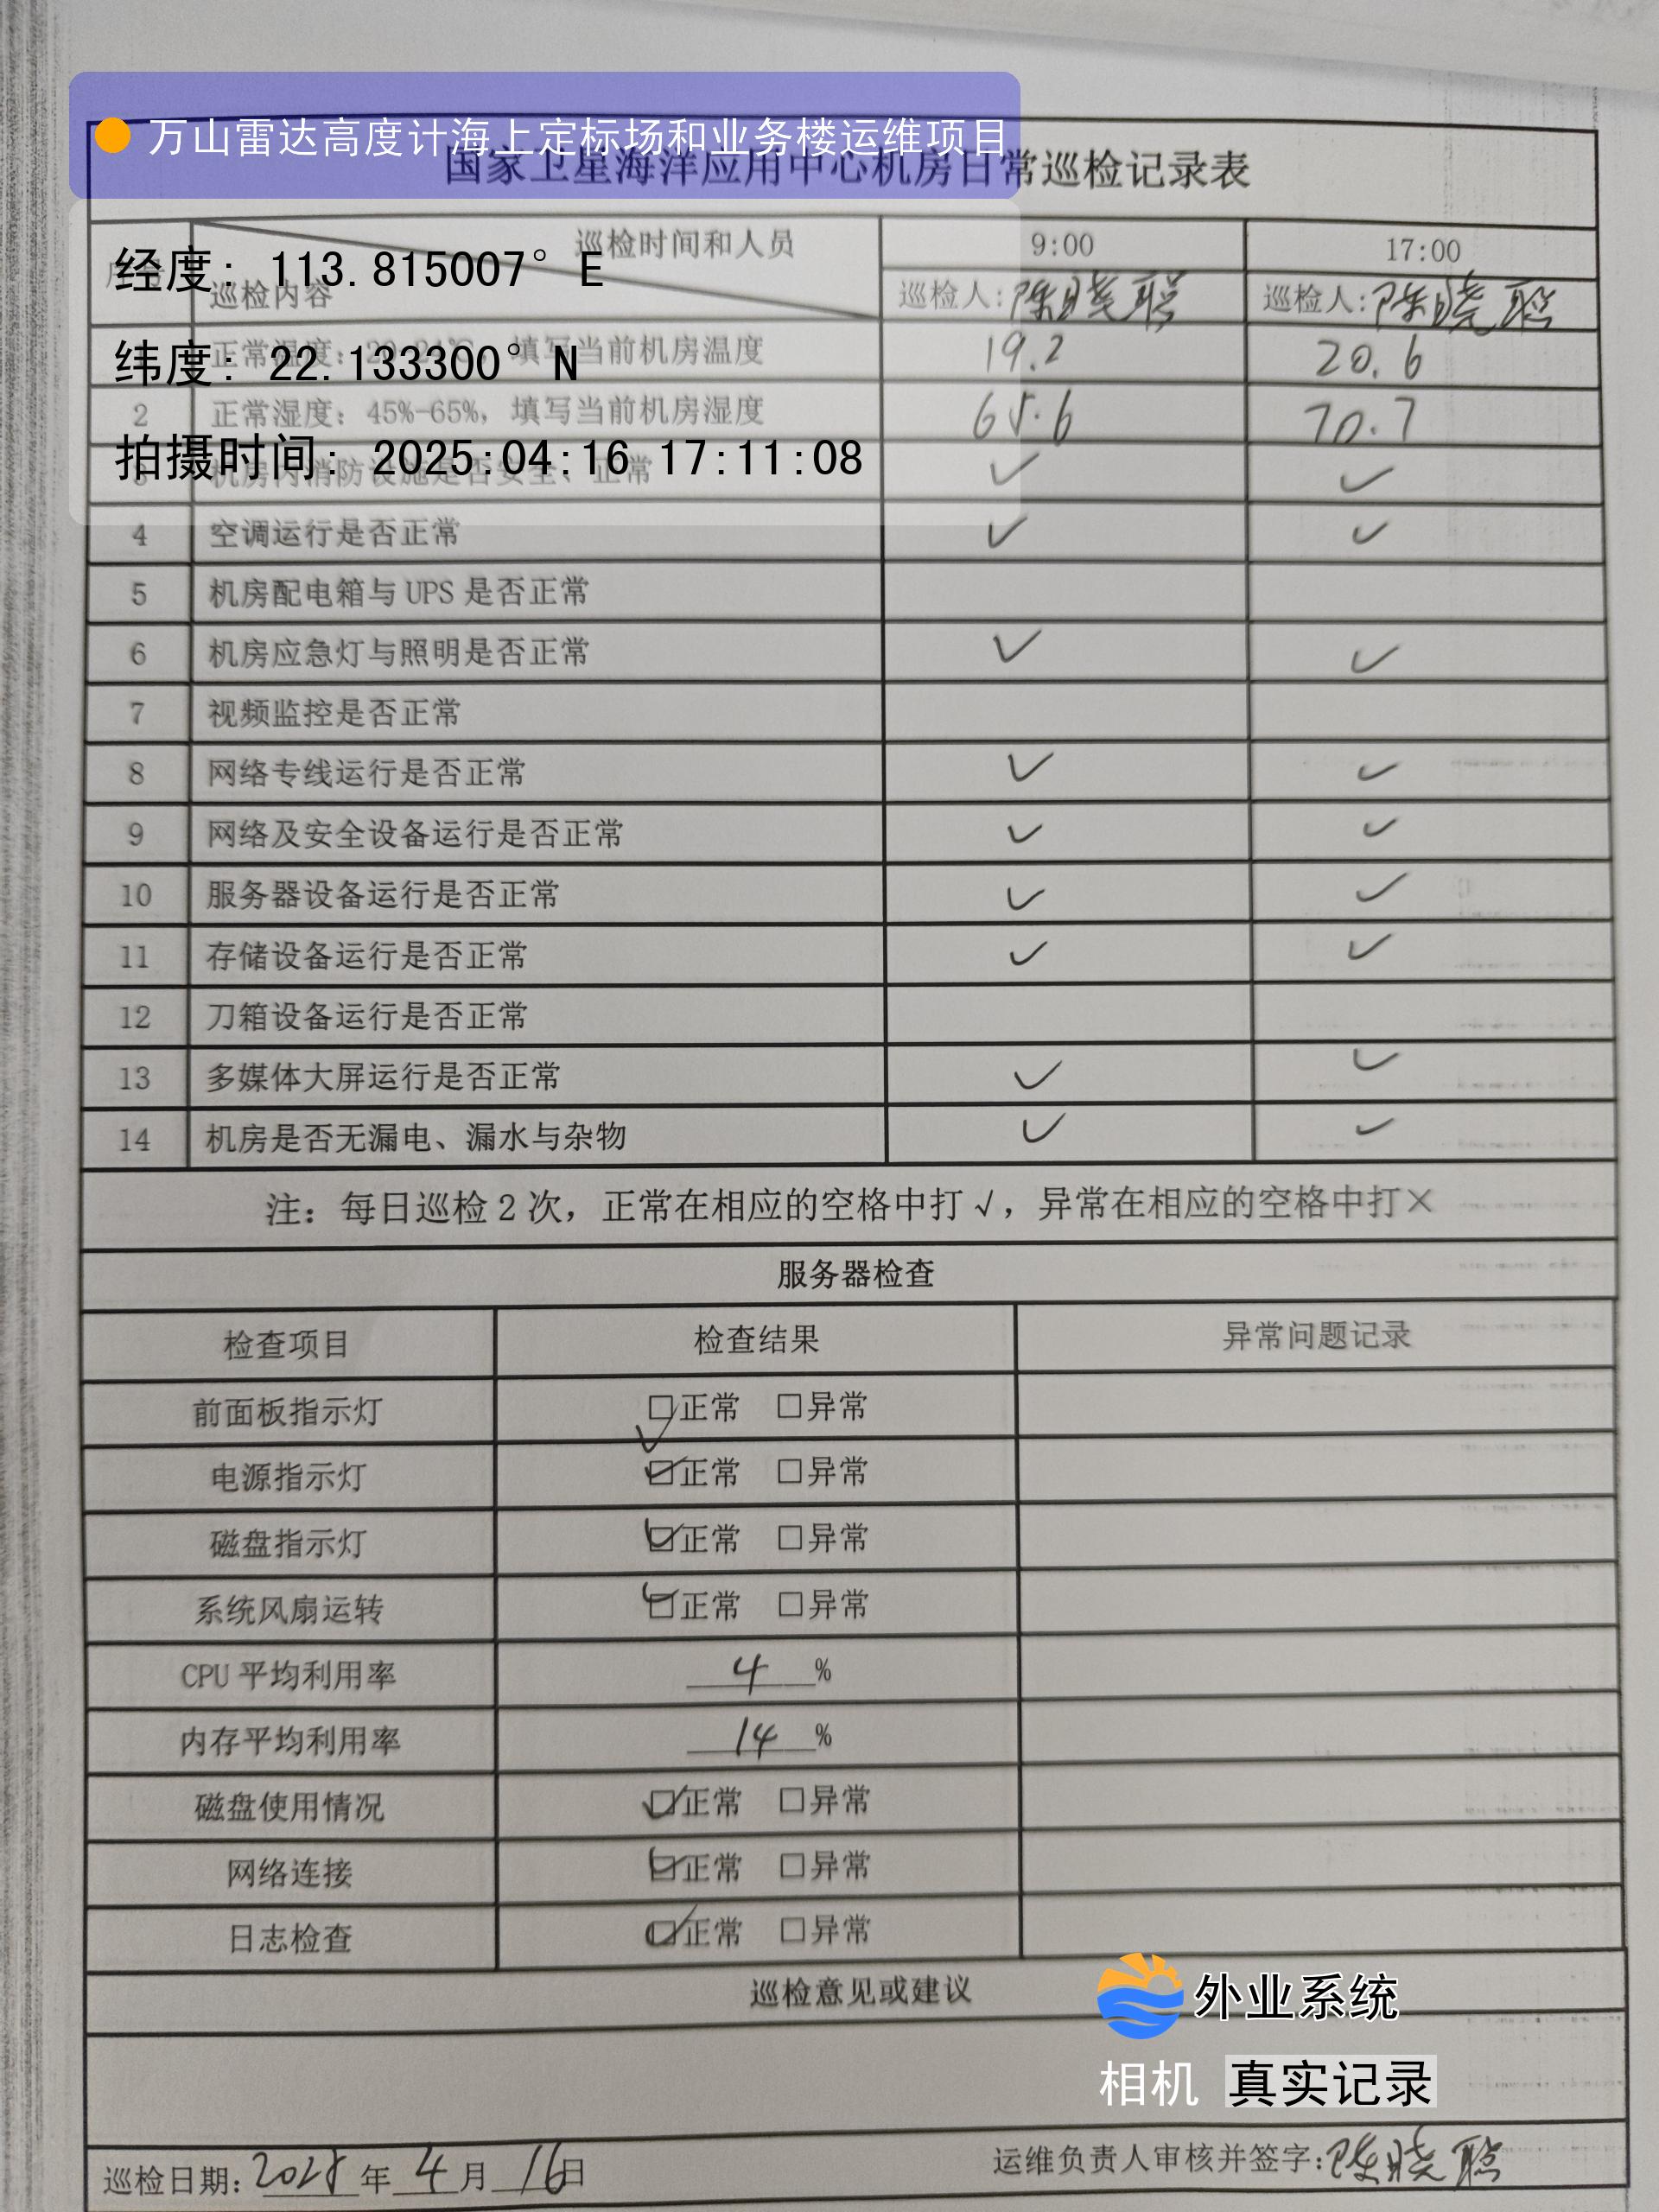 万山雷达高度计海上定标场和业务楼运维项目
国家卫星海洋应用中心机房日常巡检记录表
经度: 113.815007° E
纬度: 22.133300° N
拍摄时间: 2025:04:16 17:11:08
序号 巡检时间和人员 巡检内容 9:00 17:00
巡检人:陈晓聪 巡检人:陈晓聪
1 正常温度:20-24℃,填写当前机房温度 19.2 20.6
2 正常湿度:45%-65%,填写当前机房湿度 65.6 70.7
3 机房内消防设施是否安全、正常 ✓ ✓
4 空调运行是否正常 ✓ ✓
5 机房配电箱与UPS是否正常
6 机房应急灯与照明是否正常 ✓ ✓
7 视频监控是否正常
8 网络专线运行是否正常 ✓ ✓
9 网络及安全设备运行是否正常 ✓ ✓
10 服务器设备运行是否正常 ✓ ✓
11 存储设备运行是否正常 ✓ ✓
12 刀箱设备运行是否正常
13 多媒体大屏运行是否正常 ✓ ✓
14 机房是否无漏电、漏水与杂物 ✓ ✓
注:每日巡检2次,正常在相应的空格中打√,异常在相应的空格中打×
服务器检查
检查项目 检查结果 异常问题记录
前面板指示灯 ☑正常 □异常
电源指示灯 ☑正常 □异常
磁盘指示灯 ☑正常 □异常
系统风扇运转 ☑正常 □异常
CPU平均利用率 4%
内存平均利用率 14%
磁盘使用情况 ☑正常 □异常
网络连接 ☑正常 □异常
日志检查 ☑正常 □异常
巡检意见或建议
外业系统
相机 真实记录
巡检日期:2025年4月16日 运维负责人审核并签字:陈晓聪